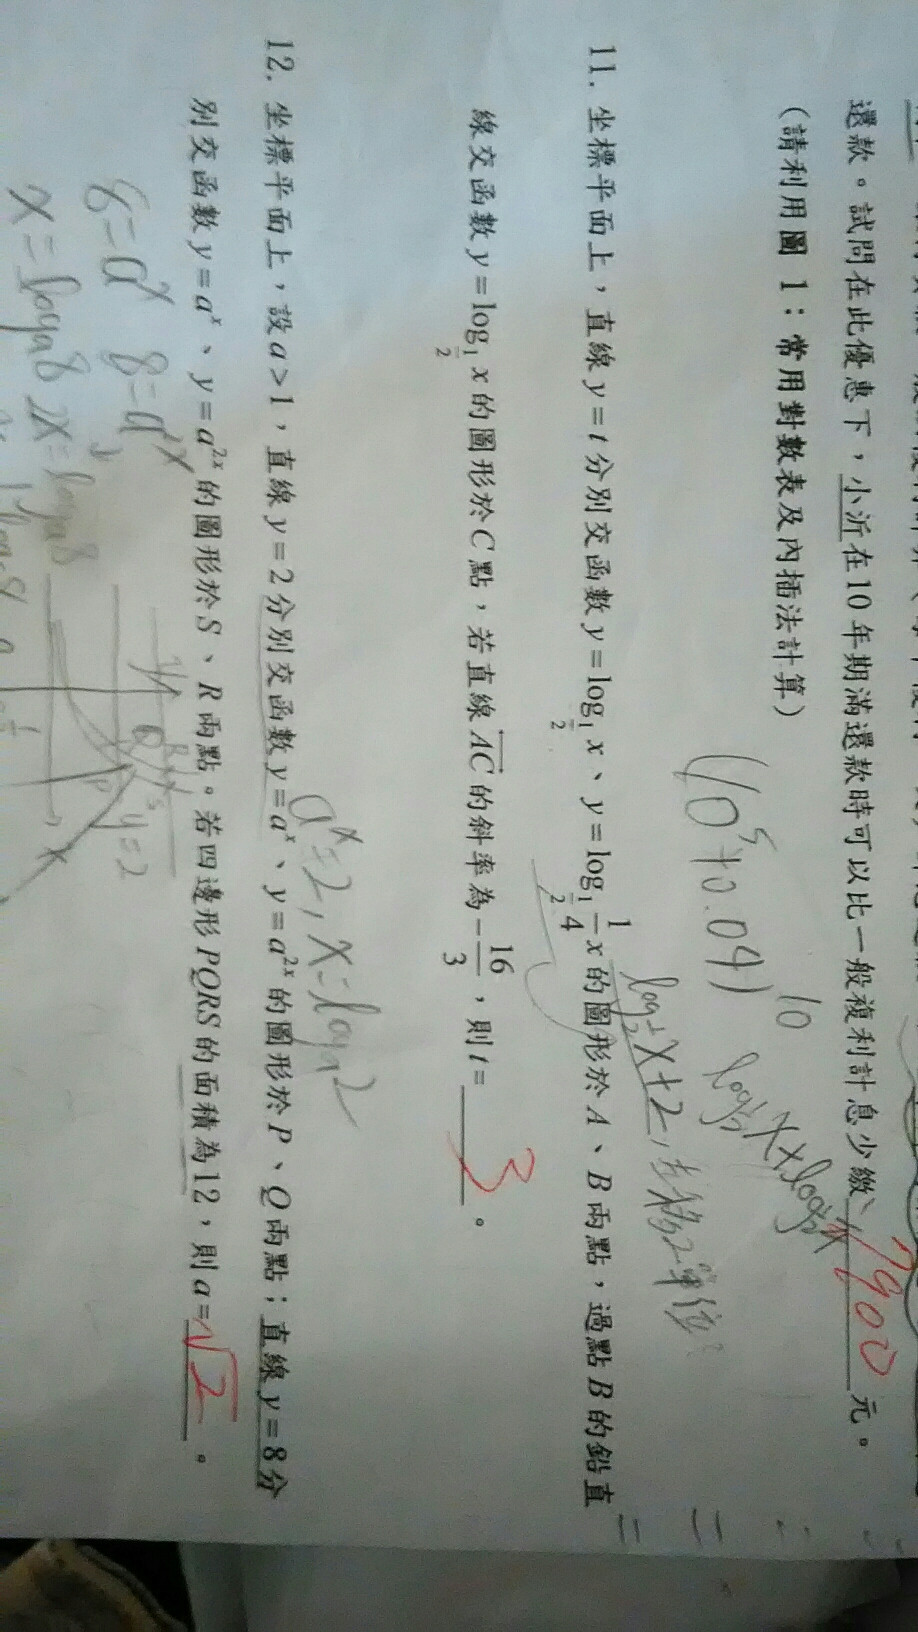 還款。試問在此優惠下，小沂在10年期滿還款時可以比一般複利計息少繳 7900 元。
（請利用圖 1：常用對數表及內插法計算）
(10^5+0.04)^10
log_{1/2} x × log_{1/2}
log_{1/2} x+2, 左移2單位
11. 坐標平面上，直線 y=t 分別交函數 y=log_{1/2} x、y=log_{1/2} 1/4 x 的圖形於 A、B 兩點，過點 B 的鉛直
線交函數 y=log_{1/2} x 的圖形於 C 點，若直線 AC 的斜率為 -16/3，則 t= 3 。
a^x=2, x=log_a 2
12. 坐標平面上，設 a>1，直線 y=2 分別交函數 y=a^x、y=a^{2x} 的圖形於 P、Q 兩點；直線 y=8 分
別交函數 y=a^x、y=a^{2x} 的圖形於 S、R 兩點。若四邊形 PQRS 的面積為 12，則 a= √2 。
8=a^x 8=a^{2x}
y=2
x=log_a 8 2x=log_a 8
x